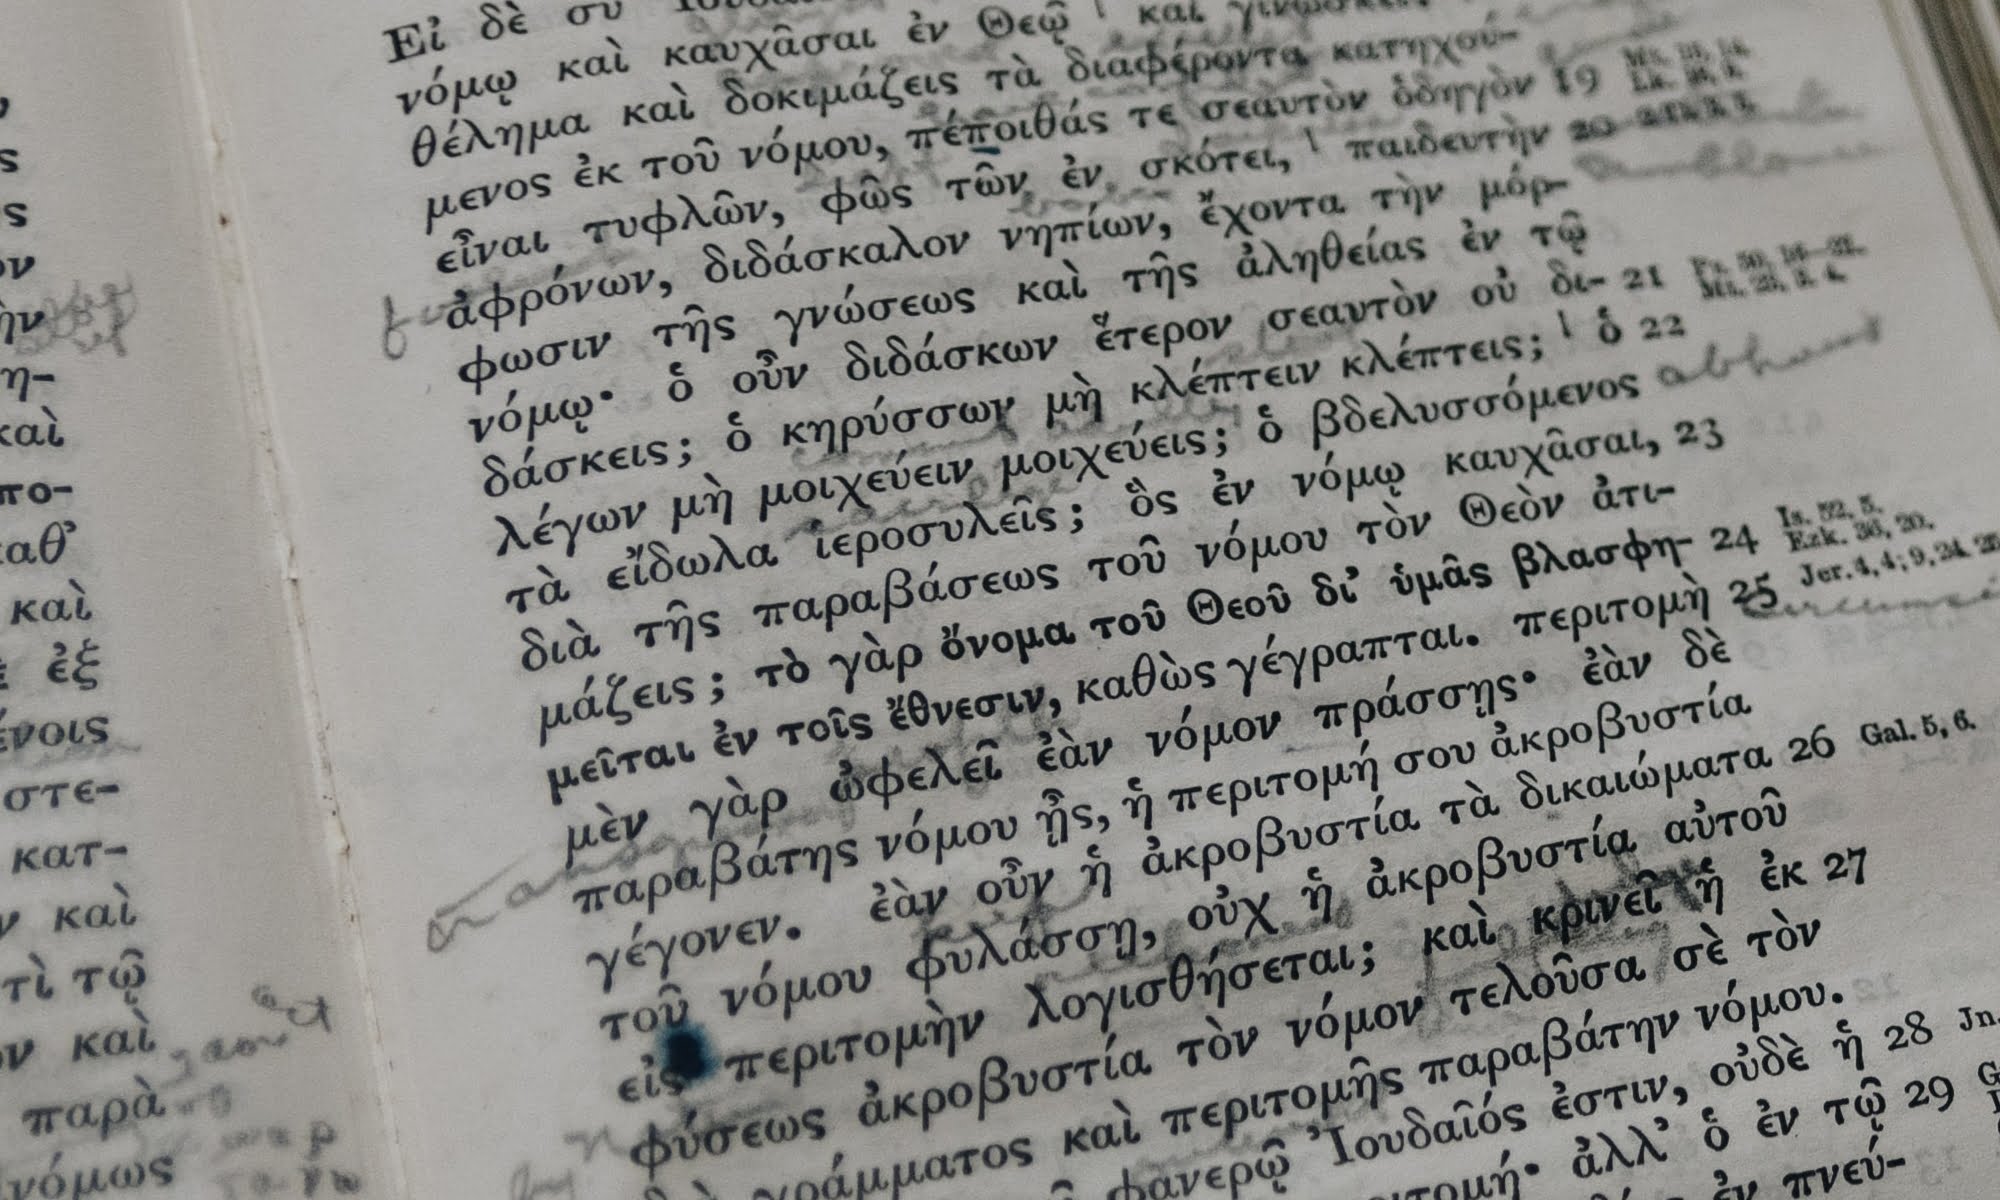 ς
ς
ον
ην
η-
καὶ
πο-
καθ’
καὶ
ἐξ
ένοις
στε-
κατ-
ν καὶ
τὶ τῷ
ον καὶ
παρὰ
νόμως
Εἰ δὲ σὺ
νόμῳ καὶ καυχᾶσαι ἐν Θεῷ | καὶ γινώσκεις
θέλημα καὶ δοκιμάζεις τὰ διαφέροντα κατηχού-
μενος ἐκ τοῦ νόμου, πέποιθάς τε σεαυτὸν ὁδηγὸν 19
εἶναι τυφλῶν, φῶς τῶν ἐν σκότει, | παιδευτὴν 20
ἀφρόνων, διδάσκαλον νηπίων, ἔχοντα τὴν μόρ-
φωσιν τῆς γνώσεως καὶ τῆς ἀληθείας ἐν τῷ
νόμῳ· ὁ οὖν διδάσκων ἕτερον σεαυτὸν οὐ δι- 21
δάσκεις; ὁ κηρύσσων μὴ κλέπτειν κλέπτεις; | ὁ 22
λέγων μὴ μοιχεύειν μοιχεύεις; ὁ βδελυσσόμενος abhors
τὰ εἴδωλα ἱεροσυλεῖς; ὃς ἐν νόμῳ καυχᾶσαι, 23
διὰ τῆς παραβάσεως τοῦ νόμου τὸν Θεὸν ἀτι-
μάζεις; τὸ γὰρ ὄνομα τοῦ Θεοῦ δι’ ὑμᾶς βλασφη- 24 Is. 52, 5. Ezk. 36, 20.
μεῖται ἐν τοῖς ἔθνεσιν, καθὼς γέγραπται. περιτομὴ 25 Jer. 4, 4; 9, 24. 25
μὲν γὰρ ὠφελεῖ ἐὰν νόμον πράσσῃς· ἐὰν δὲ
παραβάτης νόμου ᾖς, ἡ περιτομή σου ἀκροβυστία
γέγονεν. ἐὰν οὖν ἡ ἀκροβυστία τὰ δικαιώματα 26 Gal. 5, 6.
τοῦ νόμου φυλάσσῃ, οὐχ ἡ ἀκροβυστία αὐτοῦ
εἰς περιτομὴν λογισθήσεται; καὶ κρινεῖ ἡ ἐκ 27
φύσεως ἀκροβυστία τὸν νόμον τελοῦσα σὲ τὸν
γράμματος καὶ περιτομῆς παραβάτην νόμου.
φανερῷ Ἰουδαῖός ἐστιν, οὐδὲ ἡ 28 Jn.
περιτομή· ἀλλ’ ὁ ἐν τῷ 29
ἐν πνεύ-